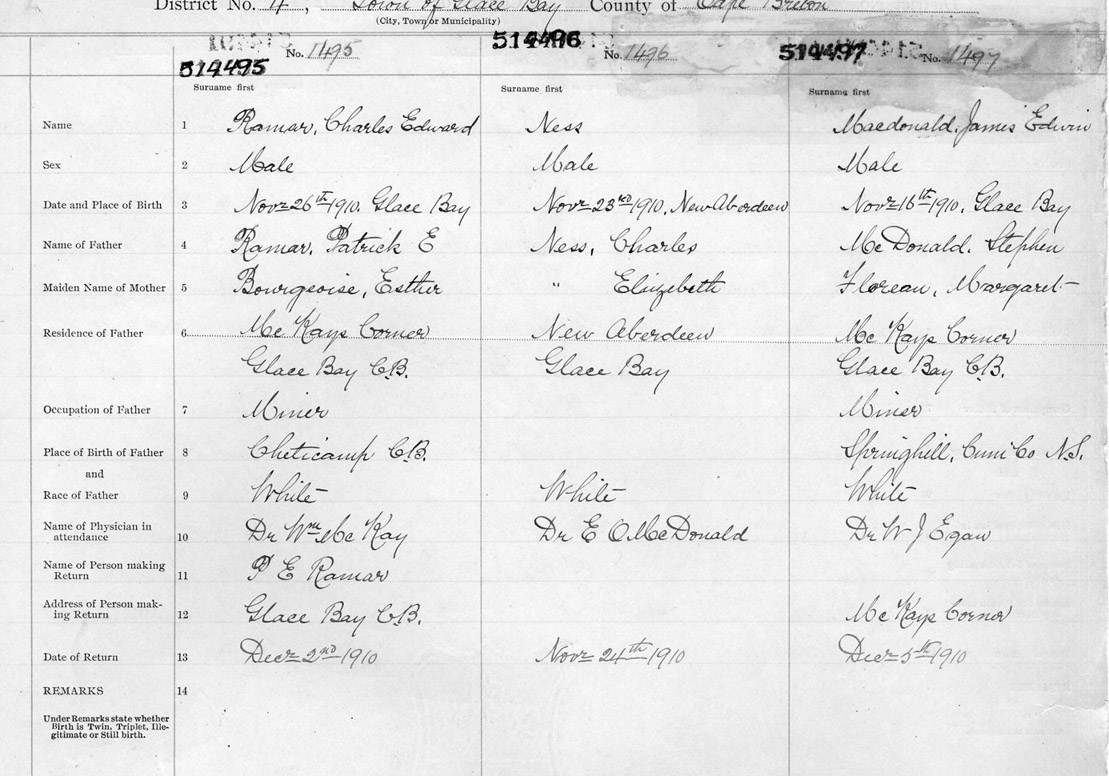 District No. 4, Town of Glace Bay County of Cape Breton
(City, Town or Municipality)
No. 1495 514496 No. 1496 514497 No. 1497
514495
Surname first Surname first Surname first
Name 1 Ramar, Charles Edward Ness Macdonald, James Edwin
Sex 2 Male Male Male
Date and Place of Birth 3 Novr 26th 1910. Glace Bay Novr 23rd 1910, New Aberdeen Novr 16th 1910. Glace Bay
Name of Father 4 Ramar, Patrick E Ness, Charles McDonald. Stephen
Maiden Name of Mother 5 Bourgeoise, Esther " Elizebeth Florean, Margaret
Residence of Father 6 McKays Corner New Aberdeen McKays Corner
Glace Bay C.B. Glace Bay Glace Bay C.B.
Occupation of Father 7 Miner Miner
Place of Birth of Father 8 Cheticamp C.B. Springhill, Cum Co N.S.
and
Race of Father 9 White White White
Name of Physician in
attendance 10 Dr Wm McKay Dr E O McDonald Dr W J Egan
Name of Person making
Return 11 P E Ramar
Address of Person mak-
ing Return 12 Glace Bay C.B. McKays Corner
Date of Return 13 Decr 2nd 1910 Novr 24th 1910 Decr 5th 1910
REMARKS 14
Under Remarks state whether
Birth is Twin. Triplet, Ille-
gitimate or Still birth.